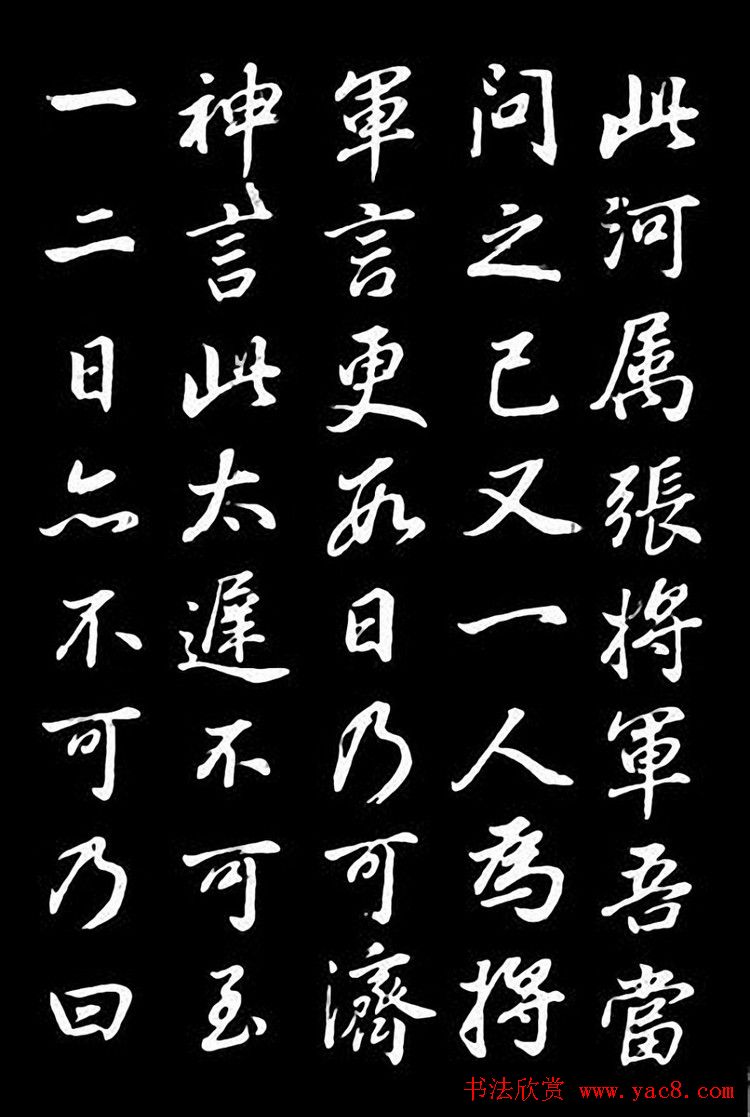 此河属張將軍吾當
問之已又一人為將
軍言更數日乃可濟
神言此太遲不可至
一二日亦不可乃曰
书法欣赏 www.yac8.com